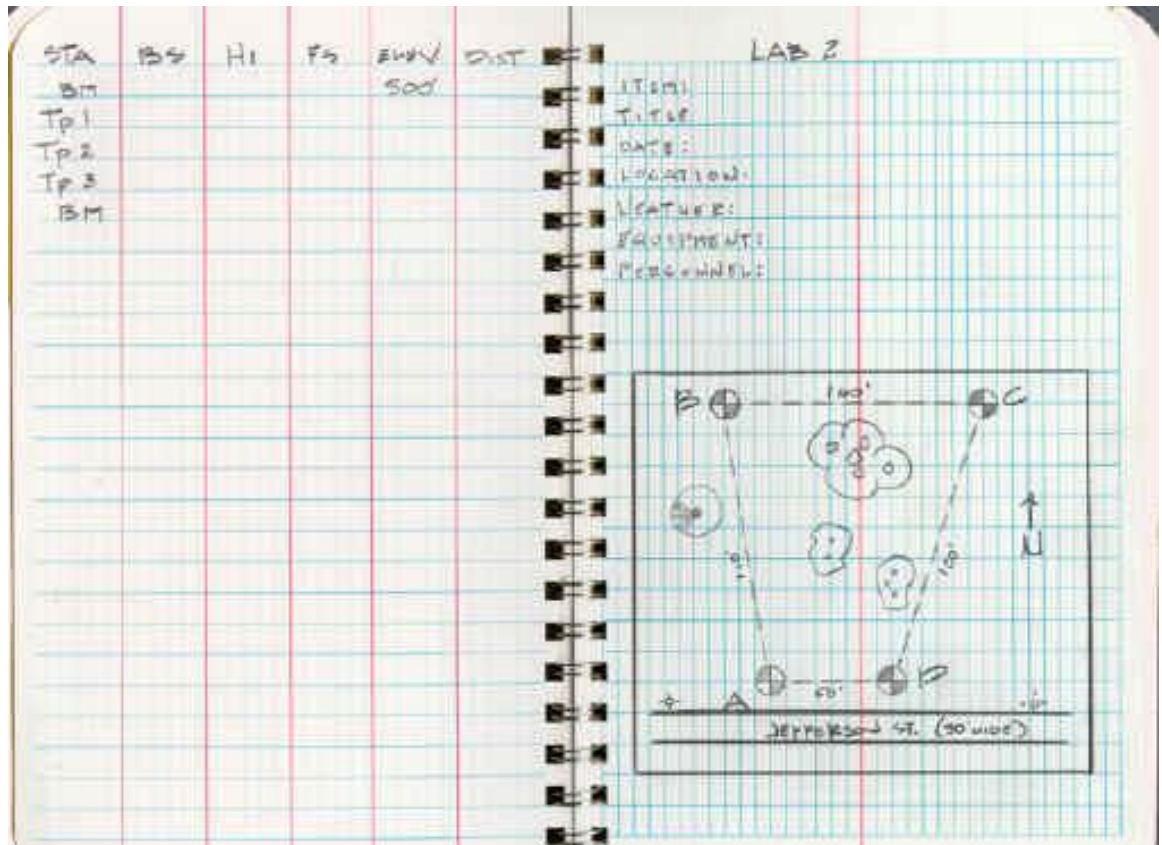 STA BS HI FS ELEV DIST
BM 500'
Tp 1
Tp 2
Tp 3
BM
LAB 2
ITEM:
TITLE
DATE:
LOCATION:
WEATHER:
EQUIPMENT:
PERSONNEL:
B 140' C
N
100'
A 60' D
JEFFERSON ST. (50 WIDE)